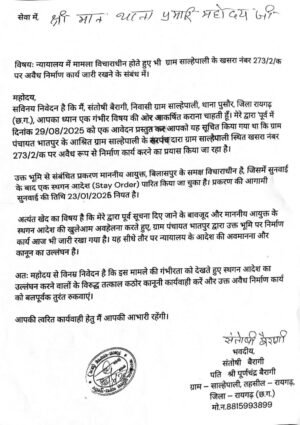 सेवा में,
श्री मान थाना प्रभारी महोदय जी
विषय: न्यायालय में मामला विचाराधीन होते हुए भी ग्राम साल्हेपाली के खसरा नंबर 273/2/क
पर अवैध निर्माण कार्य जारी रखने के संबंध में।
महोदय,
सविनय निवेदन है कि मैं, संतोषी बैरागी, निवासी ग्राम साल्हेपाली, थाना पुसौर, जिला रायगढ़
(छ.ग.), आपका ध्यान एक गंभीर विषय की ओर आकर्षित कराना चाहती हूँ। मेरे द्वारा पूर्व में
दिनांक 29/08/2025 को एक आवेदन प्रस्तुत कर आपको यह सूचित किया गया था कि ग्राम
पंचायत भातपुर के आश्रित ग्राम साल्हेपाली के सरपंच द्वारा ग्राम साल्हेपाली स्थित खसरा नंबर
273/2/क पर अवैध रूप से निर्माण कार्य करने का प्रयास किया जा रहा है।
उक्त भूमि से संबंधित प्रकरण माननीय आयुक्त, बिलासपुर के समक्ष विचाराधीन है, जिसमें सुनवाई
के बाद एक स्थगन आदेश (Stay Order) पारित किया जा चुका है। प्रकरण की आगामी
सुनवाई की तिथि 23/01/2026 नियत है।
अत्यंत खेद का विषय है कि मेरे द्वारा पूर्व सूचना दिए जाने के बावजूद और माननीय आयुक्त के
स्थगन आदेश की खुलेआम अवहेलना करते हुए, ग्राम पंचायत भातपुर द्वारा उक्त भूमि पर निर्माण
कार्य आज भी जारी रखा गया है। यह सीधे तौर पर न्यायालय के आदेश की अवमानना और
कानून का उल्लंघन है।
अतः महोदय से विनम्र निवेदन है कि इस मामले की गंभीरता को देखते हुए स्थगन आदेश का
उल्लंघन करने वालों के विरुद्ध तत्काल कठोर कानूनी कार्यवाही करें और उक्त अवैध निर्माण कार्य
को बलपूर्वक तुरंत रुकवाएं।
आपकी त्वरित कार्यवाही हेतु मैं आपकी आभारी रहूँगी।
संतोषी बैरागी
भवदीय,
संतोषी बैरागी
पति श्री पूर्णचंद्र बैरागी
ग्राम – साल्हेपाली, तहसील – रायगढ़,
जिला – रायगढ़ (छ.ग.)
मो.न.8815993899